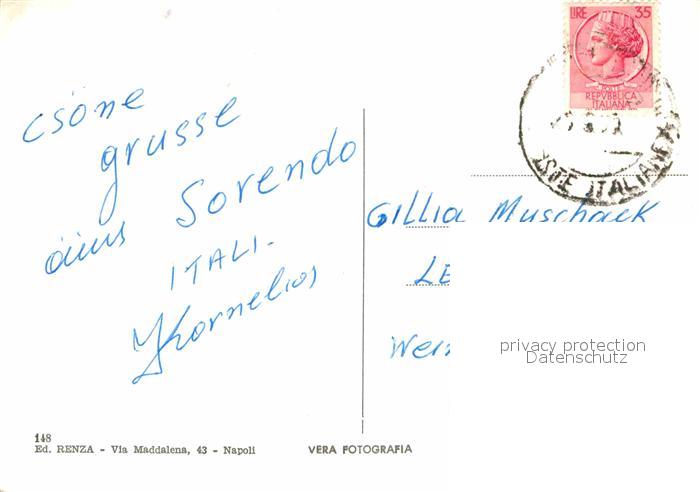 LIRE 35
POSTE
REPVBBLICA
ITALIANA
STE ITALIANE
csöne
grusse
äuus Sorendo
ITALI-
Kornelios
GILLIA Muschack
LE
Wer
privacy protection
Datenschutz
148
Ed. RENZA - Via Maddalena, 43 - Napoli
VERA FOTOGRAFIA